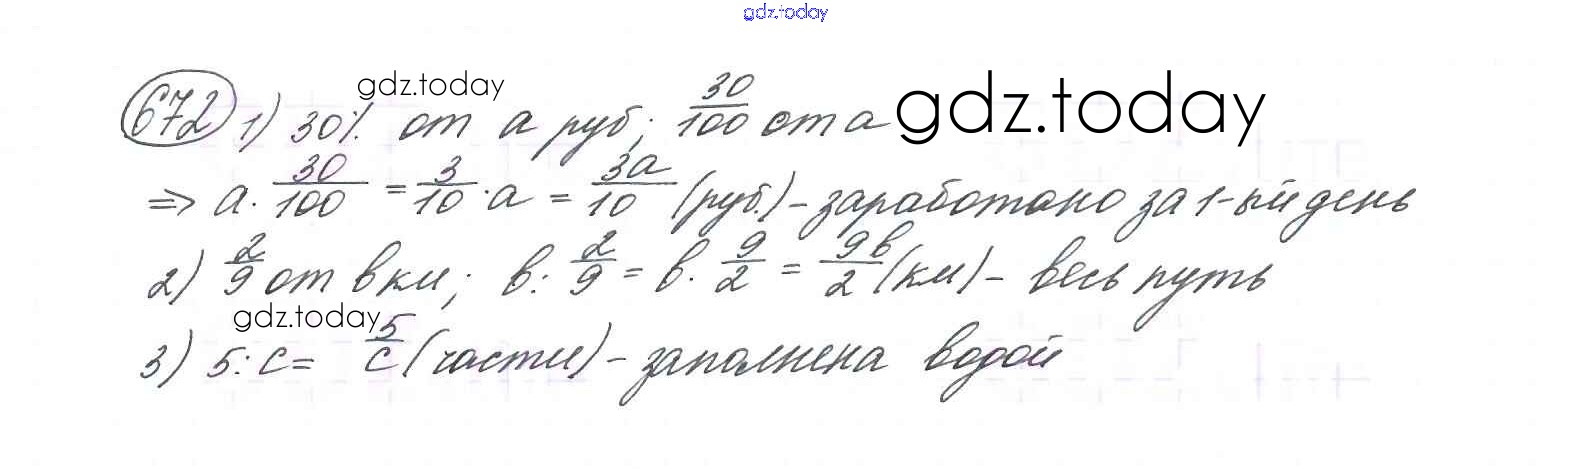 gdz.today
672 1) 30% от а руб; 30/100 от а
gdz.today
gdz.today
=> а · 30/100 = 3/10 · а = 3а/10 (руб.) – заработано за 1-ый день
2) 2/9 от в км; в : 2/9 = в · 9/2 = 9в/2 (км) – весь путь
gdz.today
3) 5 : с = 5/с (части) – заполнена водой